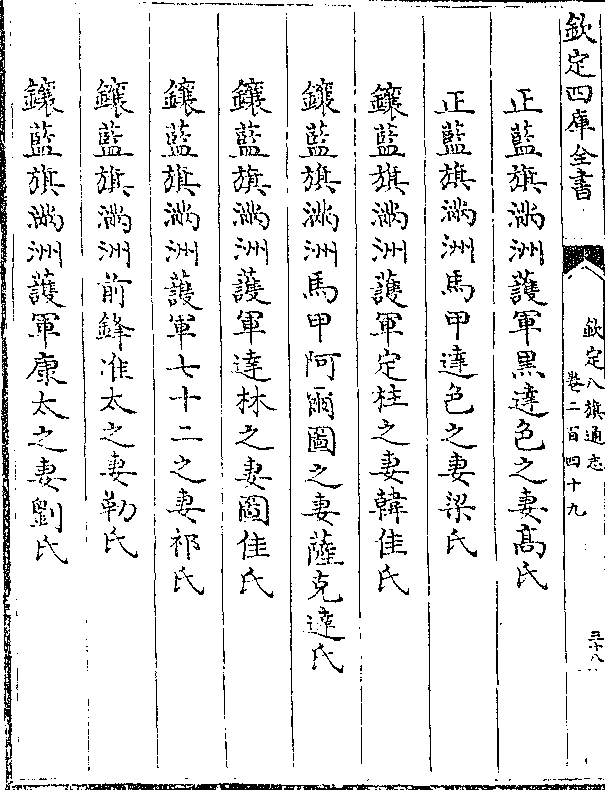 欽定四庫全書
欽定八旗通志
卷二百四十九
三十八
正藍旗滿洲護軍黒達色之妻髙氏
正藍旗滿洲馬甲達色之妻梁氏
鑲藍旗滿洲護軍定柱之妻韓佳氏
鑲藍旗滿洲馬甲阿爾圖之妻薩克達氏
鑲藍旗滿洲護軍達林之妻圖佳氏
鑲藍旗滿洲護軍七十二之妻祁氏
鑲藍旗滿洲前鋒准太之妻勒氏
鑲藍旗滿洲護軍康太之妻劉氏